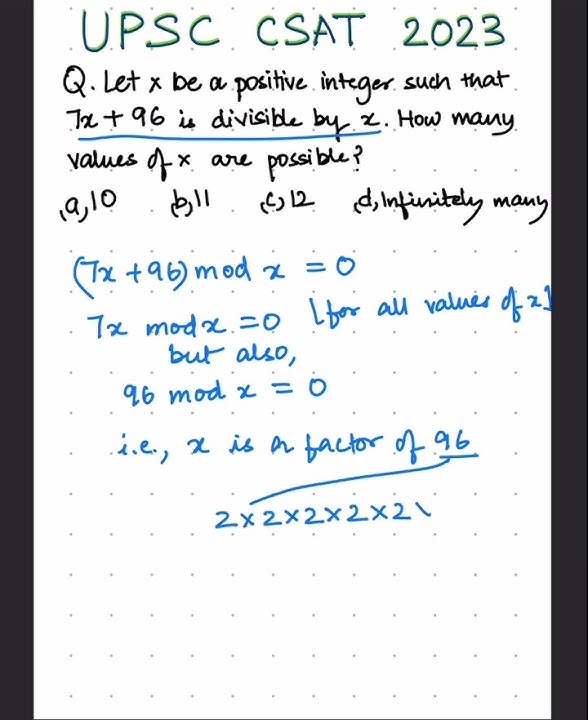 UPSC CSAT 2023
Q. Let x be a positive integer such that
7x + 96 is divisible by x. How many
values of x are possible?
(a) 10 (b) 11 (c) 12 (d) Infinitely many
(7x + 96) mod x = 0
7x mod x = 0 [for all values of x]
but also,
96 mod x = 0
i.e., x is a factor of 96
2 × 2 × 2 × 2 × 2 \